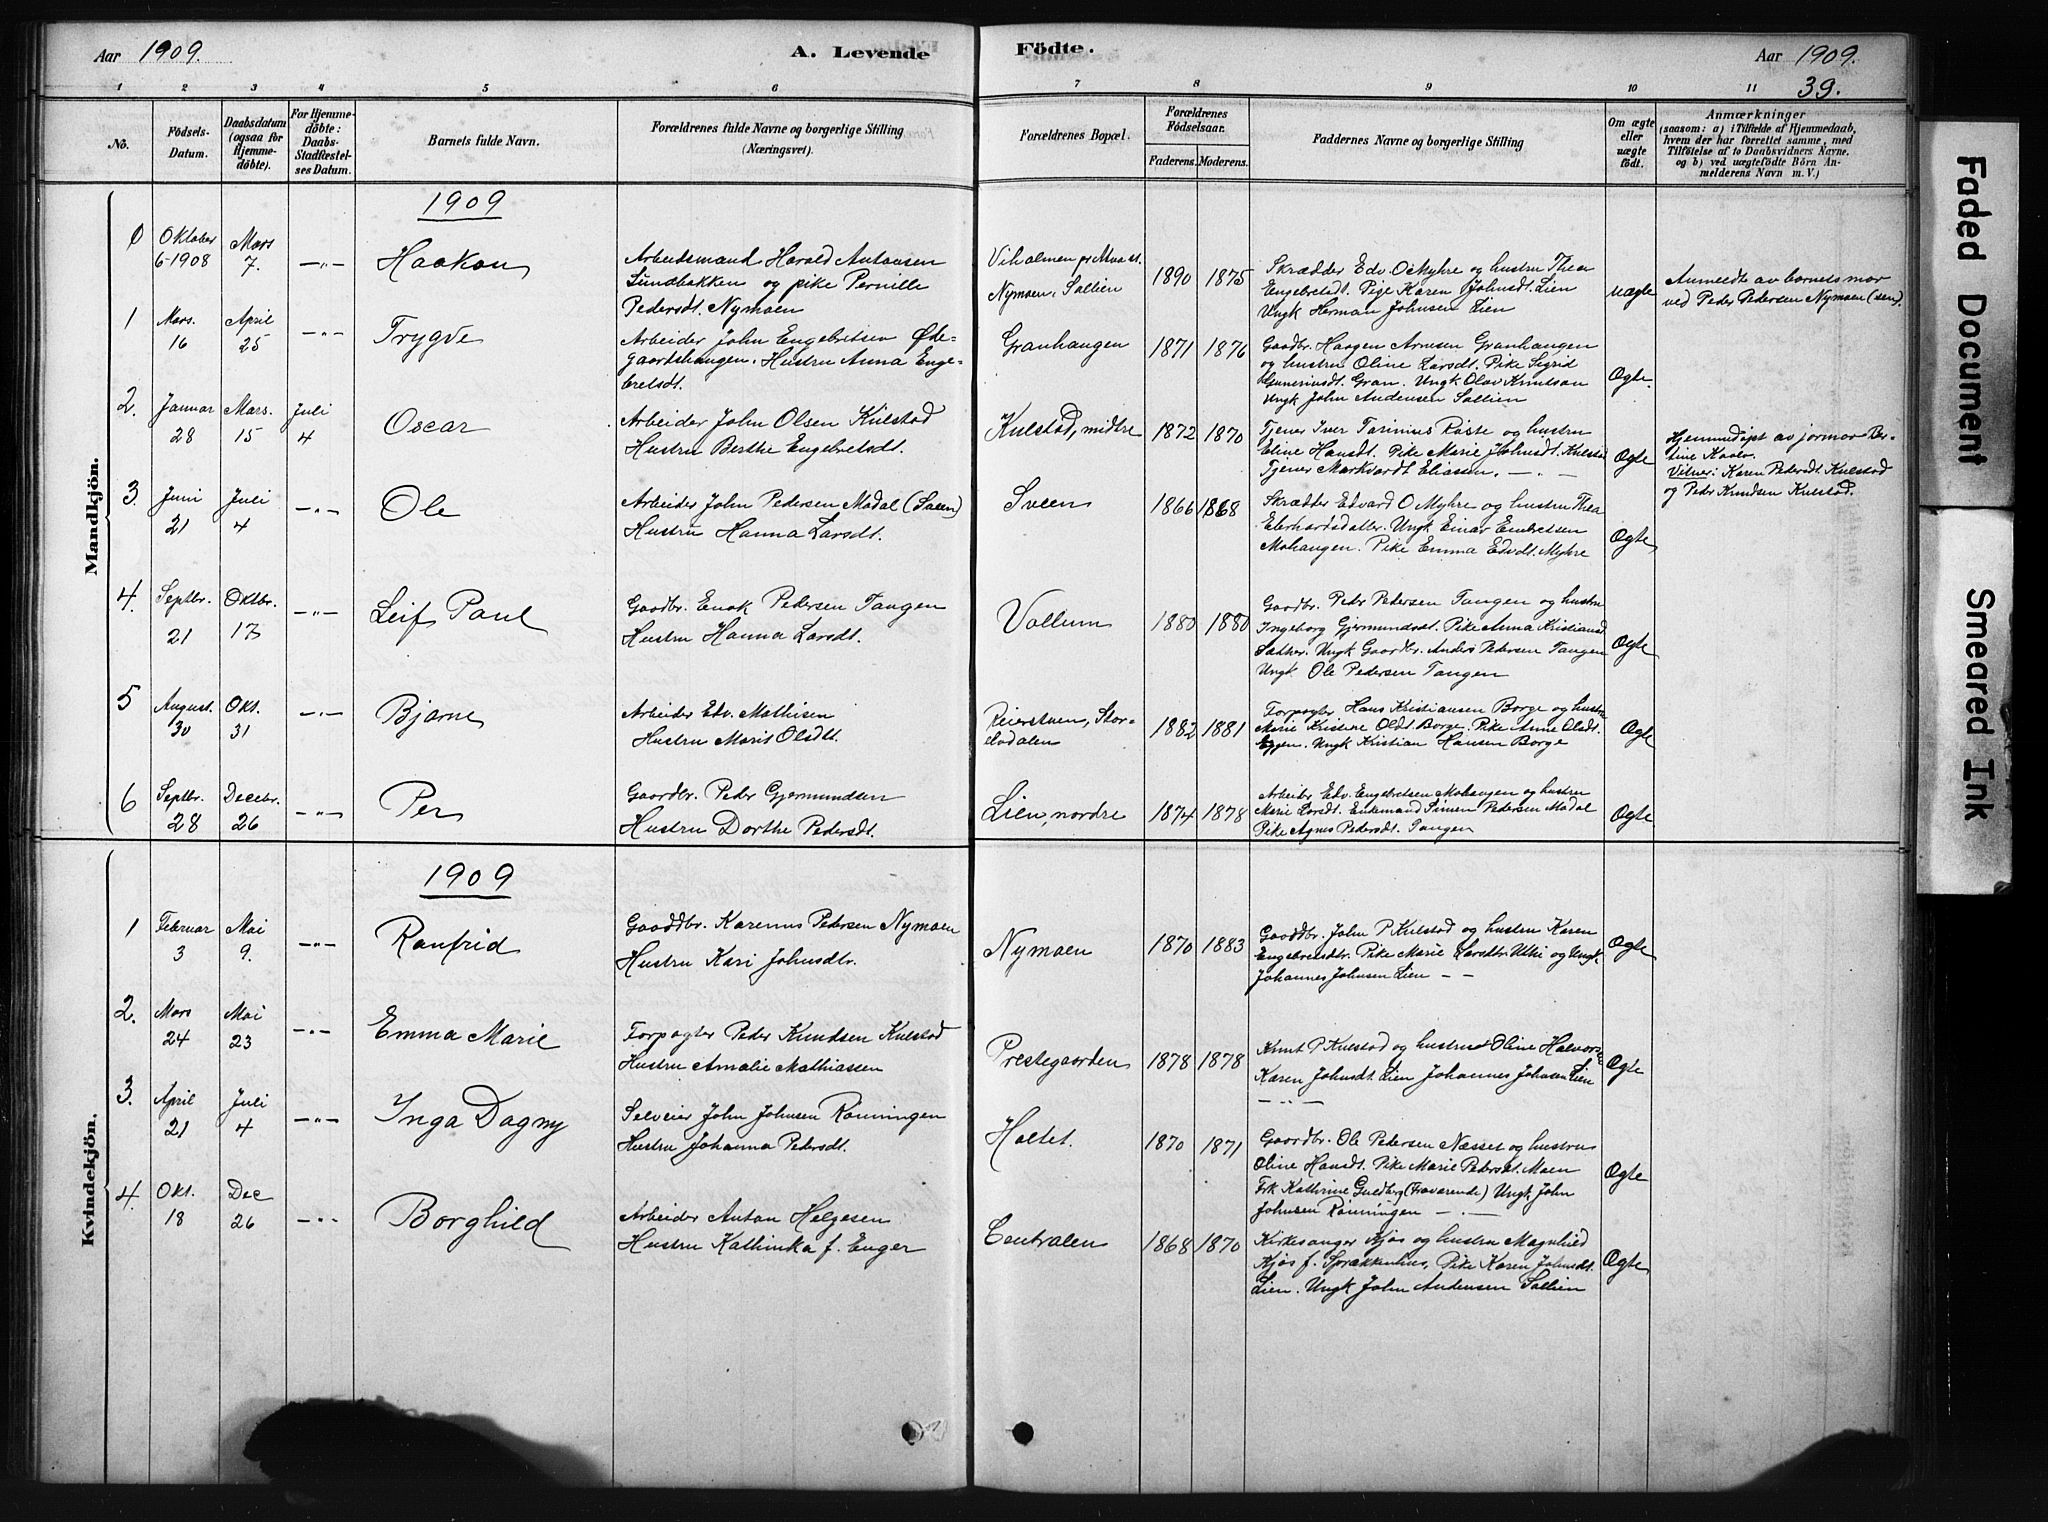 Aar 1909.
A. Levende
Födte.
Aar 1909.
39.
1 2 3 4 5 6 7 8 9 10 11
No.
Födsels-Datum.
Daabsdatum (ogsaa for Hjemme-döbte).
For Hjemme-döbte: Daabs-Stadfæstel-ses Datum.
Barnets fulde Navn.
Forældrenes fulde Navne og borgerlige Stilling (Næringsvei).
Forældrenes Bopæl.
Forældrenes Födselsaar.
Faderens. Moderens.
Faddernes Navne og borgerlige Stilling
Om ægte eller uægte födt.
Anmærkninger
(saasom: a) i Tilfælde af Hjemmedaab,
hvem der har forrettet samme, med
Tilföielse af to Daabsvidners Navne.
og b) ved uægtefödte Börn An-
melderens Navn m. V.)
Mandkjön.
1909
0 Oktober 6-1908 Mars 7. —„— Haakon
Arbeidsmand Harald Antonsen
Lundbakken og pike Pernille
Pedersdt. Nymoen
Nymoen, Sollien
1890 1875
Skrædder Edv. O Myhre og hustru Thea
Engebretsdt. Pige Karen Johnsdt. Lien
Ungk Herman Johnsen Lien
uægte
Anmeldt av barnets mor
ved Peder Pedersen Nymoen (sen).
1 Mars. 16 April 25 —„— Trygve
Arbeider John Engebretsen Øde-
gaardshaugen. Hustru Anna Enge-
bretsdt.
Granhaugen
1871 1876
Gaadbr. Haagen Arnesen Granhaugen
og hustru Oline Larsdt. Pike Sigrid
Guneriusdt. Gran. Ungk Olav Knutsan
Ungk John Andersen Sollien
Ægte.
2. Januar 28 Mars. 15 Juli 4 Oscar
Arbeider John Olsen Kulstad
Hustru Berthe Engebretsdt.
Kulstad, midtre
1872 1870
Tjener Iver Tarinius Røste og hustru
Eline Hansdt. Pike Marie Johnsdt. Kulstad
Tjener Markvardt Eliassen. — „ —
Ægte
Hjemmedøpt av jormor Ber-
tine Kaalv.
Vitner: Karen Pedersdt. Kulstad
og Peder Knudsen Kulstad.
3. Juni 21 Juli 4 —„— Ole
Arbeider John Pedersen Modal (Sveen)
Hustru Hanna Larsdt.
Sveen
1866 1868
Skrædder Edvard O Myhre og hustru Thea
Eberhardsdatter. Ungk Einar Embretsen
Mohaugen. Pike Emma Edvdt. Myhre
Ægte
4. Septbr. 21 Oktbr. 17 —„— Leif Paul
Gaadbr. Enok Pedersen Tangen
Hustru Hanna Larsdt.
Vollum
1880 1880
Gaadbr. Peder Pedersen Tangen og hustru
Ingeborg Gjermundsdt. Pike Anna Kristiansd
Sæther. Ungk Gaardbr. Anders Pedersen Tangen
Ungk Ole Pedersen Tangen
Ægte
5 August. 30 Okt. 31 —„— Bjarne
Arbeider Edv. Mathisen
Hustru Marit Olsdt.
Reierstuen, Stor-
elvdalen
1882 1881
Forpagter Hans Kristiansen Borge og hustru
Marie Kristine Olsdt Borge. Pike Anne Olsdt.
Eggen. Ungk Kristian Hansen Borge
Ægte
6 Septbr. 28 Decebr. 26 —„— Per
Gaardbr. Peder Gjermundsen
Hustru Dorthe Pedersdt.
Lien, nordre
1874 1878
Arbeider Edv. Engebretsen Mohaugen og hustru
Marie Larsdt. Enkemand Simen Pedersen Modal
Pike Agnes Pedersdt. Tangen
Ægte
Kvindekjön.
1909
1 Februar 3 Mai 9. —„— Ranfrid
Gaardbr. Karenus Pedersen Nymoen
Hustru Kari Johnsdtr.
Nymoen
1870 1883
Gaardbr. John P Kulstad og hustru Karen
Engebretsdtr. Pike Marie Larsdtr. Utti og Ungk.
Johannes Johnsen Lien — —
Ægte
2. Mars 24 Mai 23 —„— Emma Marie
Forpagter Peder Knudsen Kulstad
Hustru Amalie Mathiassen
Prestegaarden
1878 1878
Knut P Kulstad og hustru Oline Halvorsen
Karen Johnsdt. Lien Johannes Johnsen Lien
— „ —
Ægte
3. April 21 Juli 4 —„— Inga Dagny
Selveier John Johnsen Rønningen
Hustru Johanna Pedersdt.
Holtet.
1870 1871
Gaardbr. Ole Pedersen Næsset og hustru
Oline Hansdt. Pike Marie Pedersdt. Moen
Frk Kathrine Guldberg (Fraværende) Ungk. John
Johnsen Rønningen — „ —
Ægte
4. Okt. 18 Dec 26 —„— Borghild
Arbeider Anton Helgesen
Hustru Kathinka f. Enger
Centralen
1868 1870
Kirkesanger Kjøs og hustru Magnhild
Kjøs f. Sprækkenhus, Pike Karen Johnsdt.
Lien. Ungk John Andersen Sollien
Ægte
Faded Document
Smeared Ink